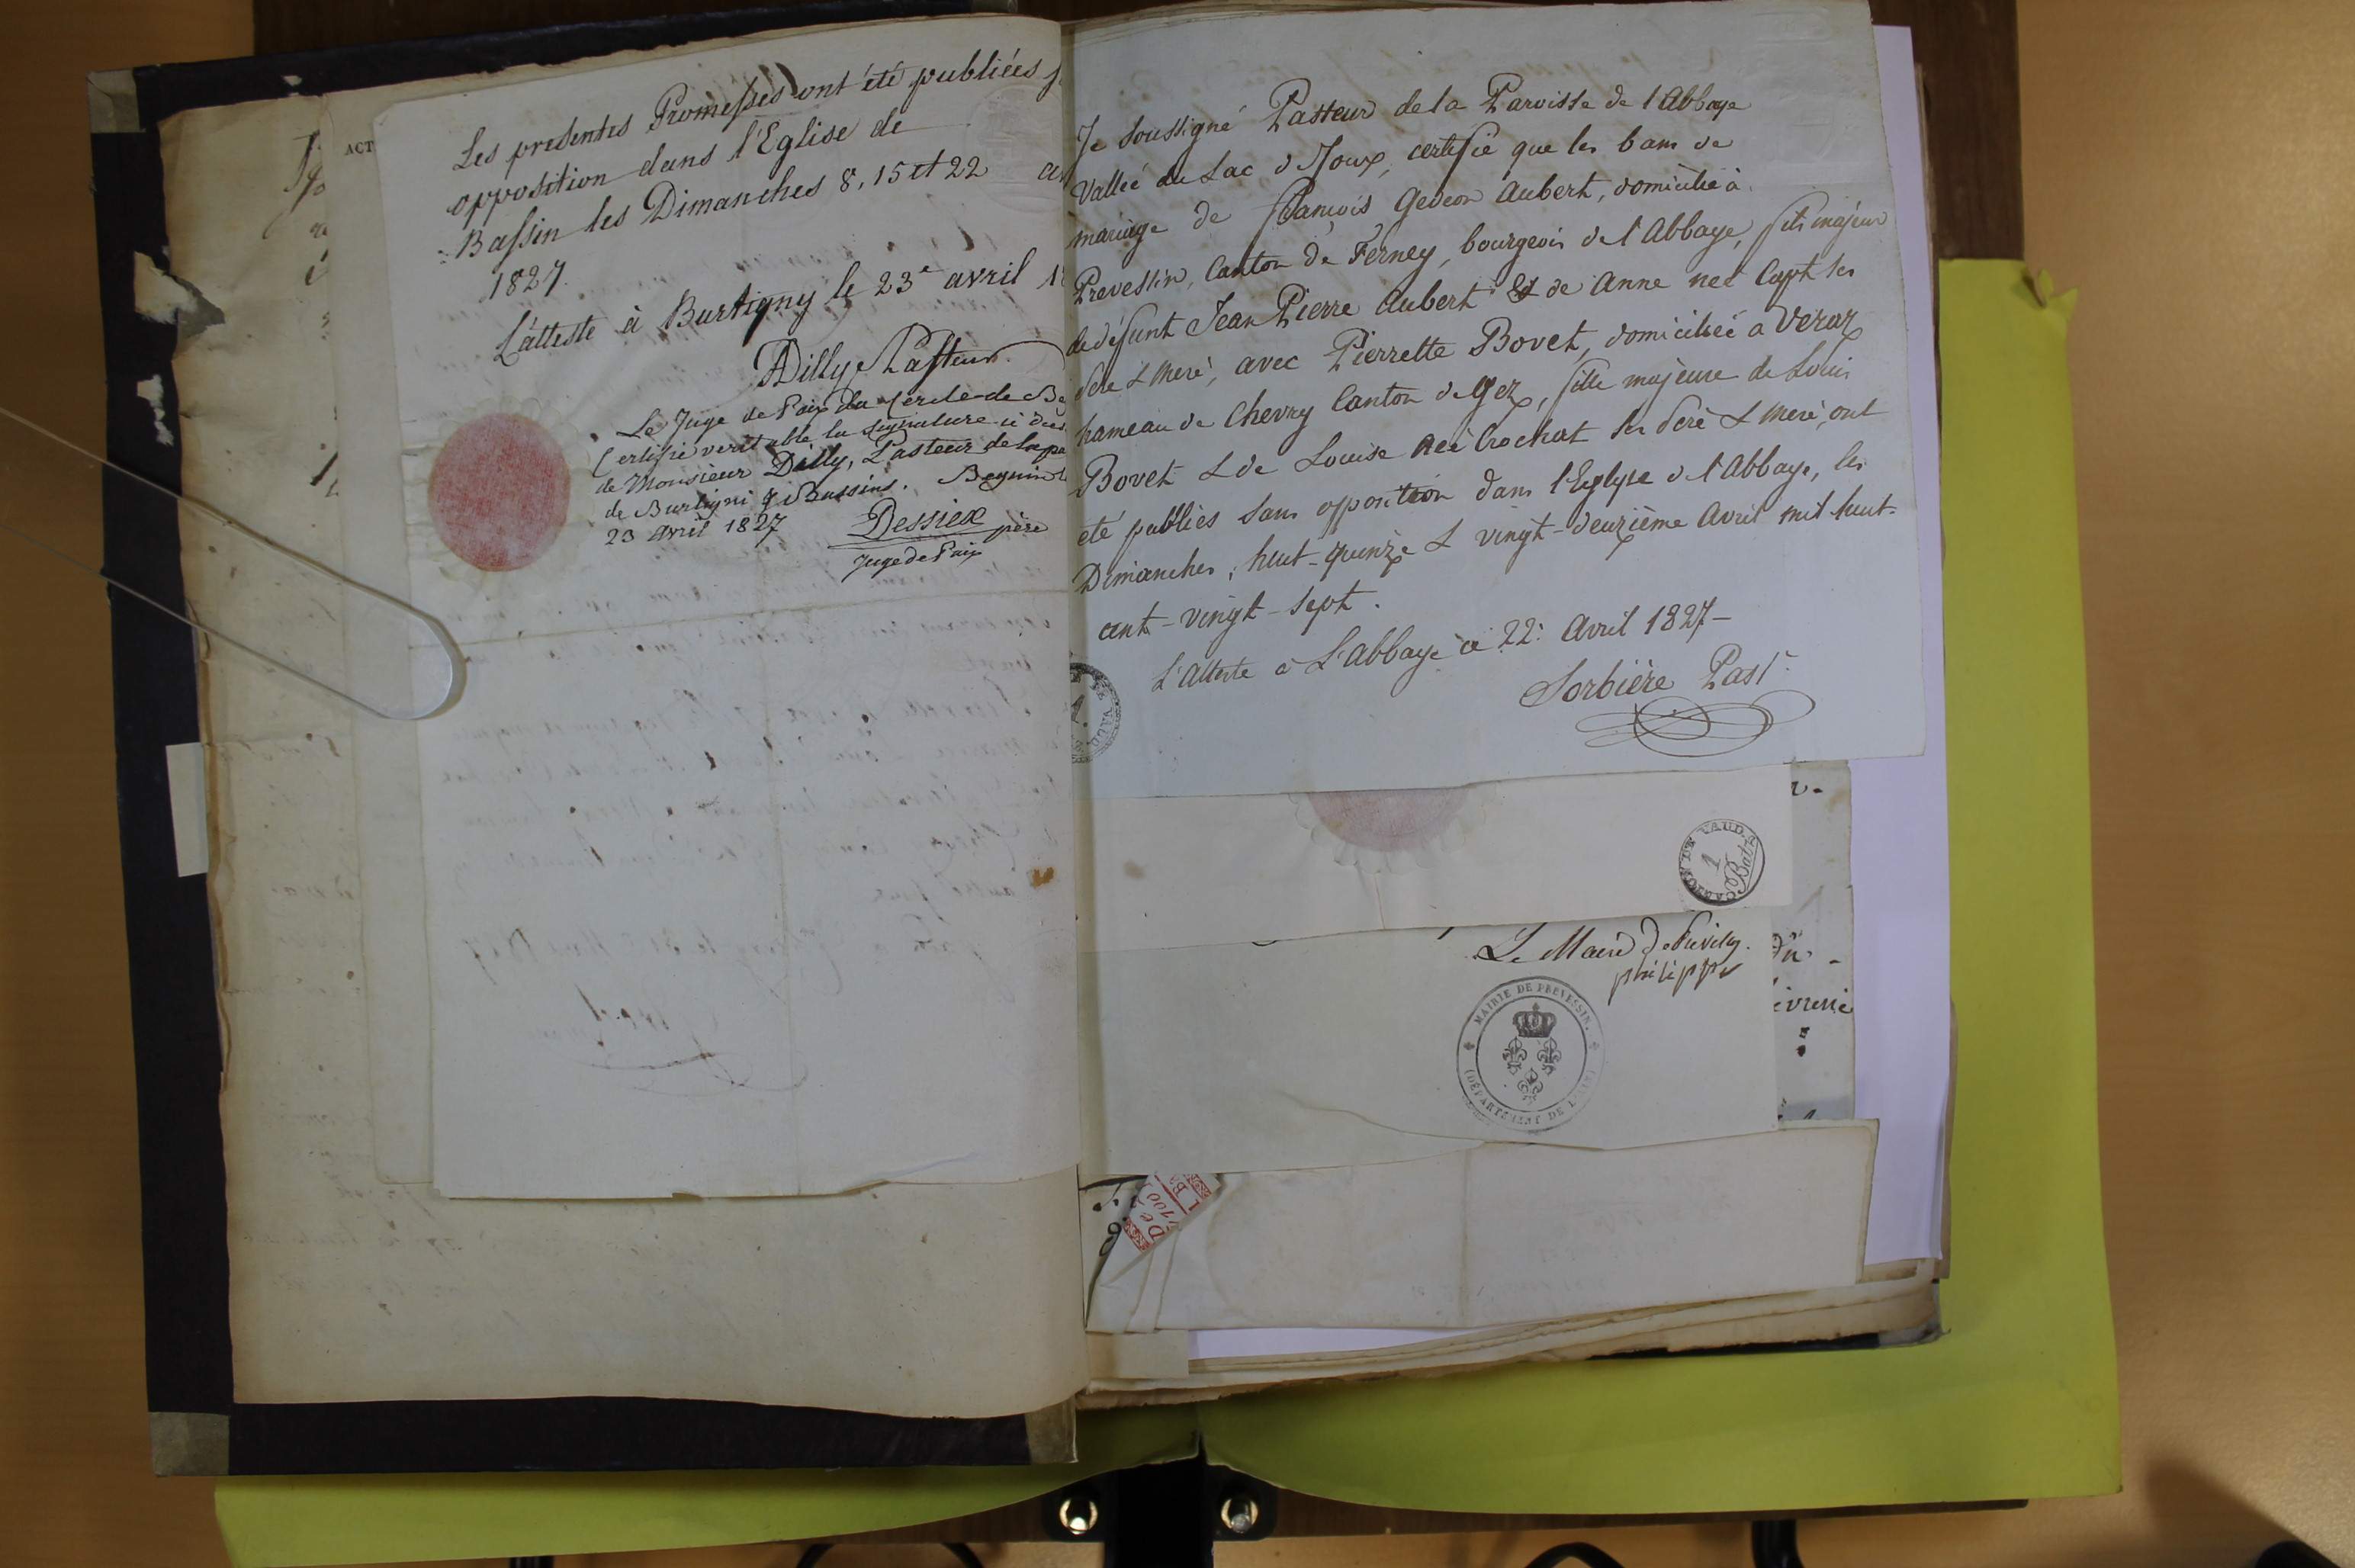 ACT
Les presentes Promesses ont été publiées
opposition dans l'Eglise de
Bassin les Dimanches 8, 15 et 22
1827.
L'atteste à Burtigny le 23e avril
Dilly Pasteur.
Le Juge de Paix du Cercle de Be
Certifie veritable la signature ci des
de Monsieur Dilly, Pasteur de la pa
de Burtigni & Bassins. Begnin
23 Avril 1827
Dessiex père
Juge de Paix
Je soussigné Pasteur de la Paroisse de l'Abbaye
Vallée du Lac de Joux, certifie que les bans de
mariage de François Gedeon Aubert, domicilié à
Prevessin, Canton de Ferney, bourgeois de l'Abbaye, fils majeur
de défunt Jean Pierre Aubert & de Anne neé Capt ses
Pere & Mere, avec Pierrette Bovet, domiciliée a Veraz
hameau de Chevry Canton de Gex, fille majeure de Louis
Bovet & de Louise neé Crochat ses Peré & Meré, ont
été publiés sans opposition dans l'Eglise de l'Abbaye, les
Dimanches, huit-quinze & vingt-deuxième Avril mil huit-
cent-vingt-sept.
L'Atteste à L'Abbaye ce 22: Avril 1827-
Sorbière Pastr.
1.
VAUD
CANTON DE VAUD.
1
Batz
Le Maire de
philippe
MAIRIE DE PREVESSIN.
(DÉPARTEMENT DE L'AIN)